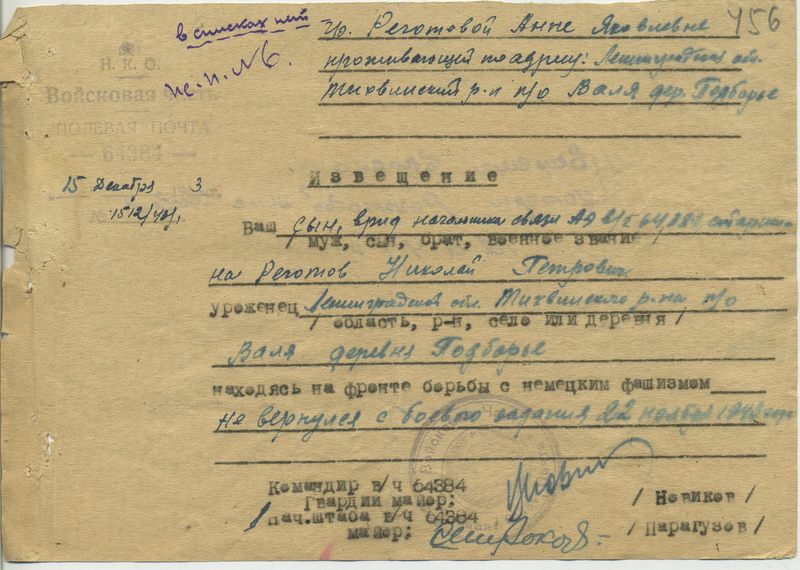 456
в списках нет
Н. К. О.
Войсковая часть
ПОЛЕВАЯ ПОЧТА
— 64384 —
15 Декабря 3
№ 1512/
гр. Реготовой Анне Яковлевне
проживающей по адресу: Ленинградская обл.
Тихвинский р-н п/о Валя дер. Подборье
Извещение
Ваш сын, врид начальника связи АЭ в/ч 64384 старши-
муж, сын, брат, военное звание
на Реготов Николай Петрович
уроженец Ленинградской обл. Тихвинского р-на п/о
/ область, р-н, село или деревня /
Валя деревня Подборье
находясь на фронте борьбы с немецким фашизмом
не вернулся с боевого задания 22 ноября
Командир в/ч 64384
Гвардии майор; / Новиков /
Нач.штаба в/ч 64384
майор; / Парагузов /